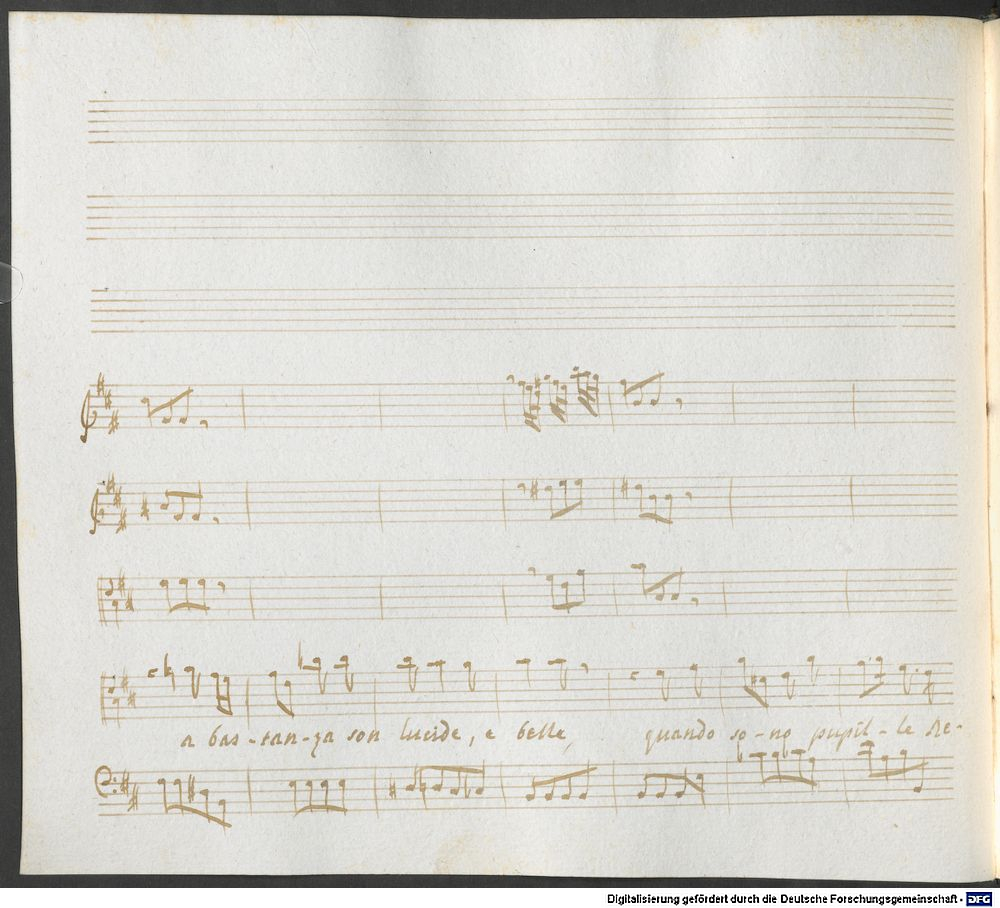 a bas-tan-za son lucide, e belle, quando so-no pupil-le Re-
Digitalisierung gefördert durch die Deutsche Forschungsgemeinschaft - DFG